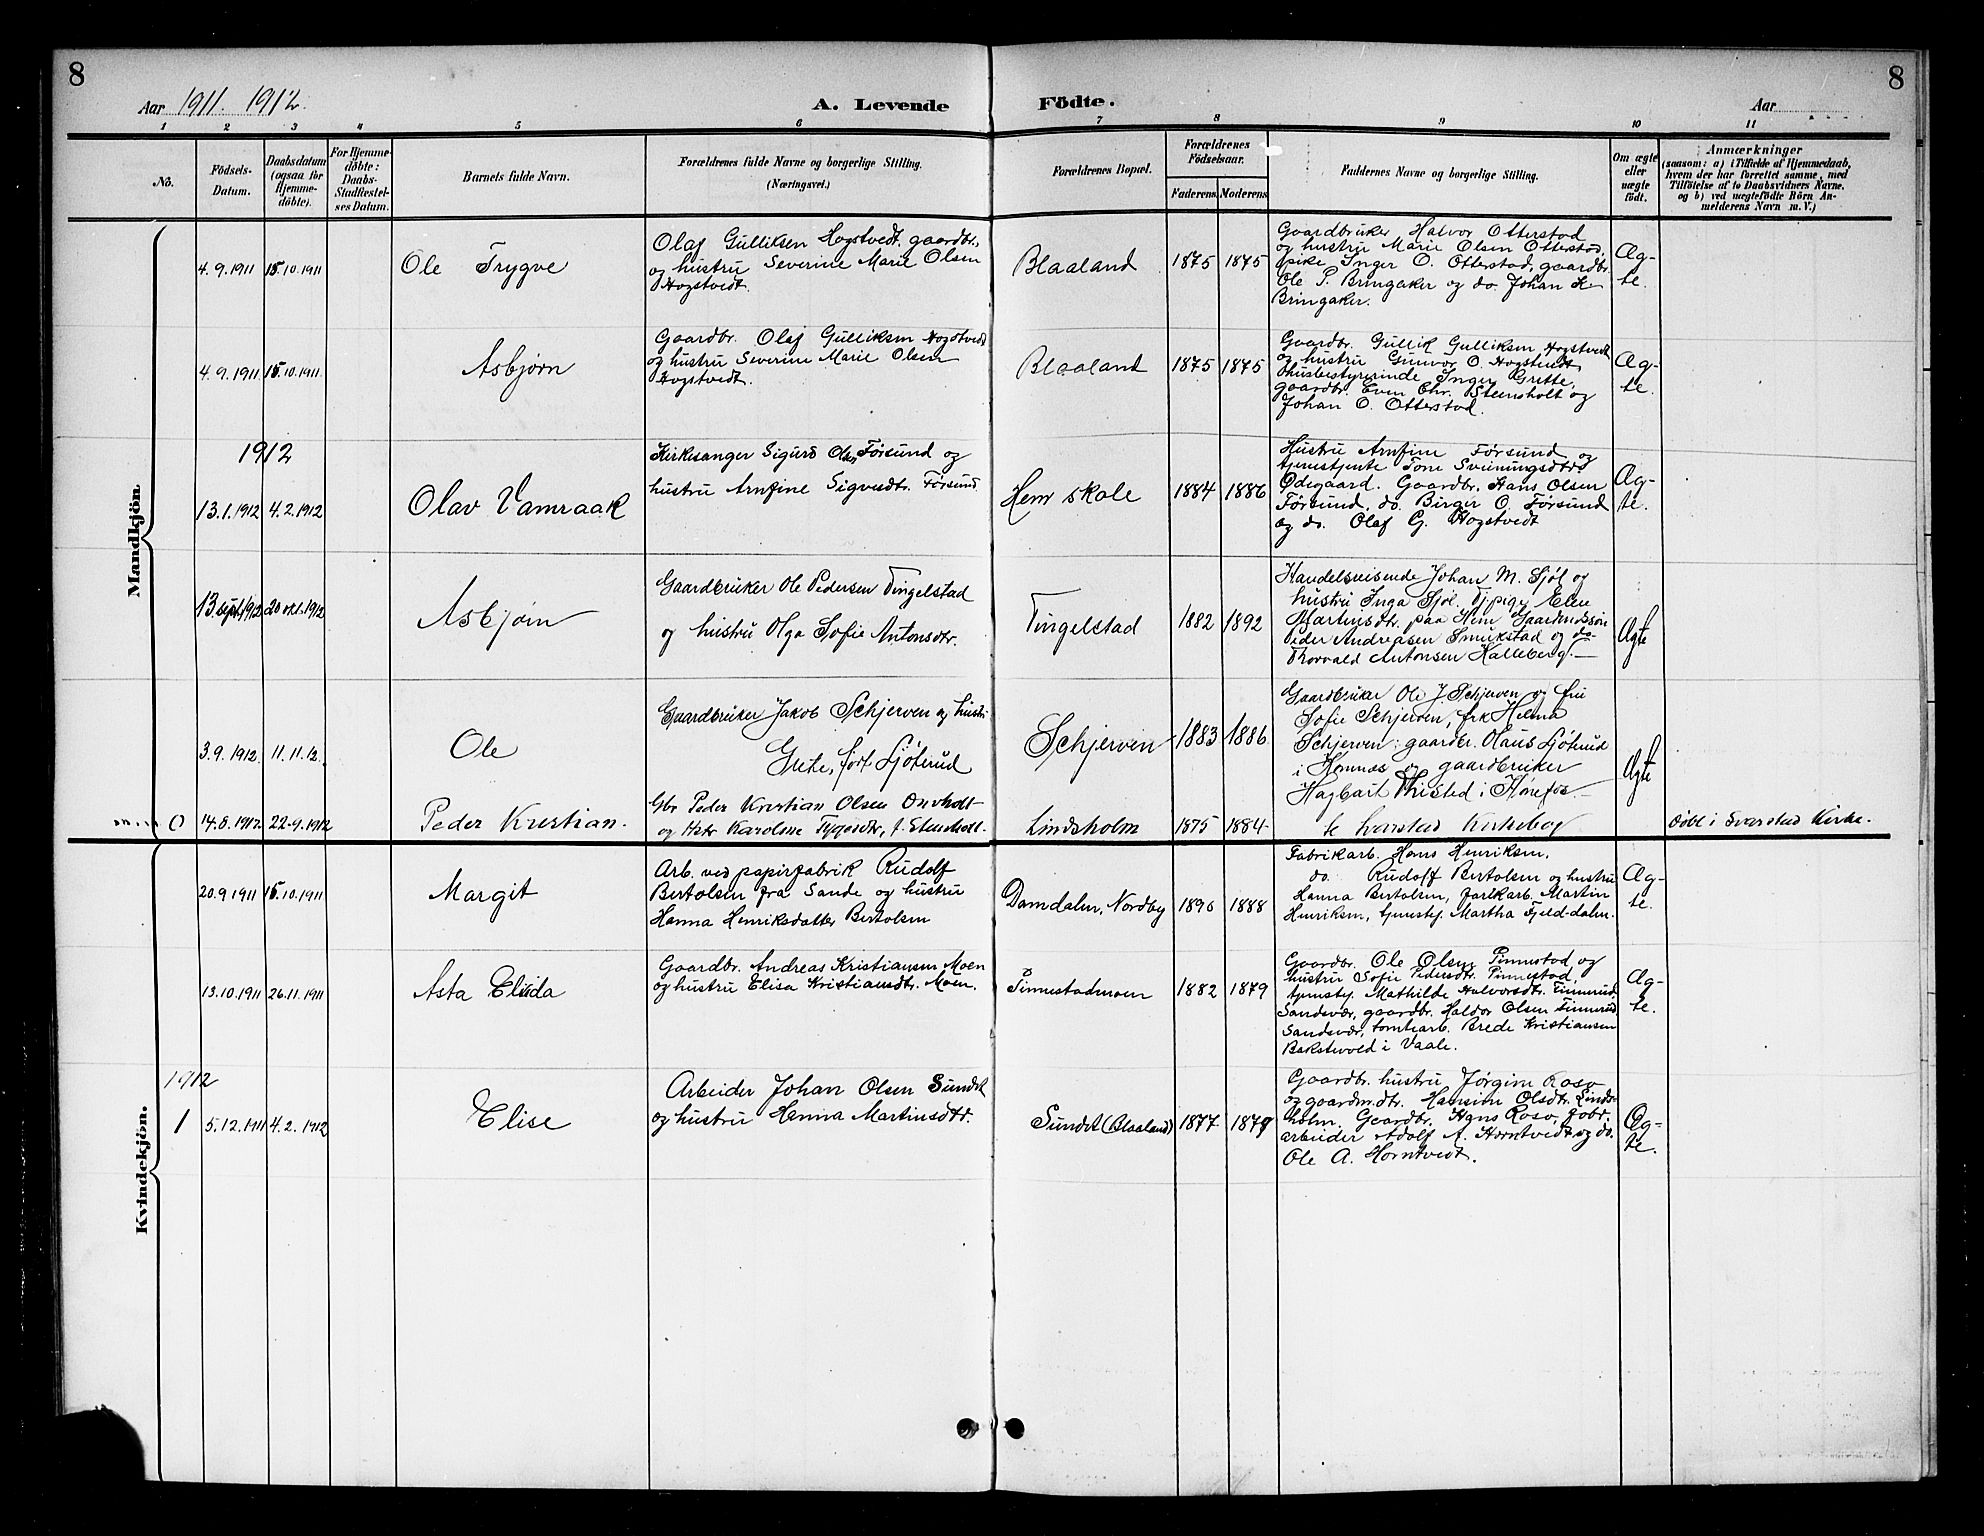 8
8
Aar 1911. 1912.
A. Levende
Födte.
Aar
1 2 3 4 5 6 7 8 9 10 11
No.
Födsels-
Datum.
Daabsdatum
(ogsaa for
Hjemme-
döbte).
For Hjemme-
döbte:
Daabs-
Stadfæstel-
ses Datum.
Barnets fulde Navn.
Forældrenes fulde Navne og borgerlige Stilling.
(Næringsvei.)
Forældrenes Bopæl.
Forældrenes
Födselsaar.
Faderens. Moderens.
Faddernes Navne og borgerlige Stilling.
Om ægte
eller
uægte
födt.
Anmærkninger
(saasom: a) i Tilfælde af Hjemmedaab,
hvem der har forrettet samme, med
Tilföielse af to Daabsvidners Navne,
og b) ved uægtefödte Börn An-
melderens Navn m. V.)
Mandkjön.
4.9.1911 15.10.1911
Ole Trygve
Olaf Gulliksen Hogstvedt, gaardbr.,
og hustru Severine Marie Olsen
Hogstvedt.
Blaaland
1875 1875
Gaardbruker Halvor Otterstad
og hustru Marie Olsen Otterstad,
pike Inger O. Otterstad, gaardbr.
Ole P. Bringaker og do. Johan K.
Bringaker.
Æg-
te.
4.9.1911 15.10.1911
Asbjørn
Gaardbr. Olaf Gulliksen Hogstvedt
og hustru Severine Marie Olsen
Hogstvedt.
Blaaland
1875 1875
Gaardbr. Gullik Gulliksen Hogstvedt
og hustru Gunvor O. Hogstvedt,
husbestyrerinde Inger Grette,
gaardbr. Even Chr. Steensholt og
Johan O. Otterstad.
Æg-
te.
1912
13.1.1912 4.2.1912
Olav Vamraak
Kirkesanger Sigurd Olsen Førsund og
hustru Arnfine Sigvesdtr. Førsund.
Hem skole
1884 1886
Hustru Arnfine Førsund og
tjenestjente Tone Sveinungsdtr
Ødegaard. Gaardbr. Hans Olsen
Førsund, do. Birger O. Førsund
og do. Olaf G. Hogstvedt
Æg-
te.
13 sept 1912 20 okt. 1912
Asbjørn
Gaardbruker Ole Pedersen Tingelstad
og hustru Olga Sofie Antonsdtr.
Tingelstad
1882 1892
Handelsreisende Johan M. Sjøl og
hustru Inga Sjøl. Tj.pige Elen
Martinsdtr. paa Hem Gaardmdssøn
Peder Andreasen Smukstad og do
Thorvald Antonsen Halleberg.
Ægte
3.9.1912. 11.11.12.
Ole
Gaardbruker Jakob Schjerven og hustru
Grete, født Ljøterud
Schjerven
1883 1886
Gaardbruker Ole J. Schjerven og fru
Sofie Schjerven, frk Helma
Schjerven, gaardbr. Olaus Ljøterud
i Homnæs og gaardbruker
Hagbart Thisted i Hønefos.
Ægte
0 14.8.1912 22-9.1912
Peder Kristian.
Gbr Peder Kristian Olsen
og Hstr Karoline f. Steensholt.
Lindsholm
1875 1884
se Svarstad Kirkebog
Døbt i Svarstad Kirke.
Kvindekjön.
20.9.1911 15.10.1911
Margit
Arb. ved papirfabrik Rudolf
Bertolsen fra Sande og hustru
Hanna Henriksdatter Bertolsen
Damdalen, Nordby
1890 1888
Fabrikarb. Hans Henriksen,
do. Rudolf Bertolsen og hustru
Hanna Bertolsen, fabrikarb. Martin
Henriksen, tjenestp. Martha Fjeld-dalen.
Æg-
te.
13.10.1911 26.11.1911
Asta Elida
Gaardbr. Andreas Kristiansen Moen
og hustru Elisa Kristiansdtr. Moen.
Pinnestadmoen
1882 1879
Gaardbr. Ole Olsen Pinnestad og
hustru Sofie Pedersdtr. Pinnestad,
tjenestp. Mathilde Halvorsdtr. Finnerud,
Sandsvær, gaardbr. Haldor Olsen Finnerud,
Sandsvær, tomtearb. Brede Kristiansen
Bakstevold i Vaale.
Æg-
te.
1912
1 5.12.1911 4.2.1912
Elise
Arbeider Johan Olsen Sundet
og hustru Hanna Martinsdtr.
Sundet (Blaaland)
1877 1879
Gaardbr. hustru Jørgine Rosv
og gaardm.dtr. Hansine Olsdtr. Linds-
holm. Gaardbr. Hans Rosv, fabr.
arbeider Adolf A. Horntvedt og do.
Ole A. Horntvedt.
Æg-
te.